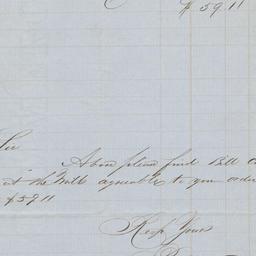 $ 59.11
Sir
Above please find Bill
at the Mill agreeable to you order
$ 59 11
Resp Yours